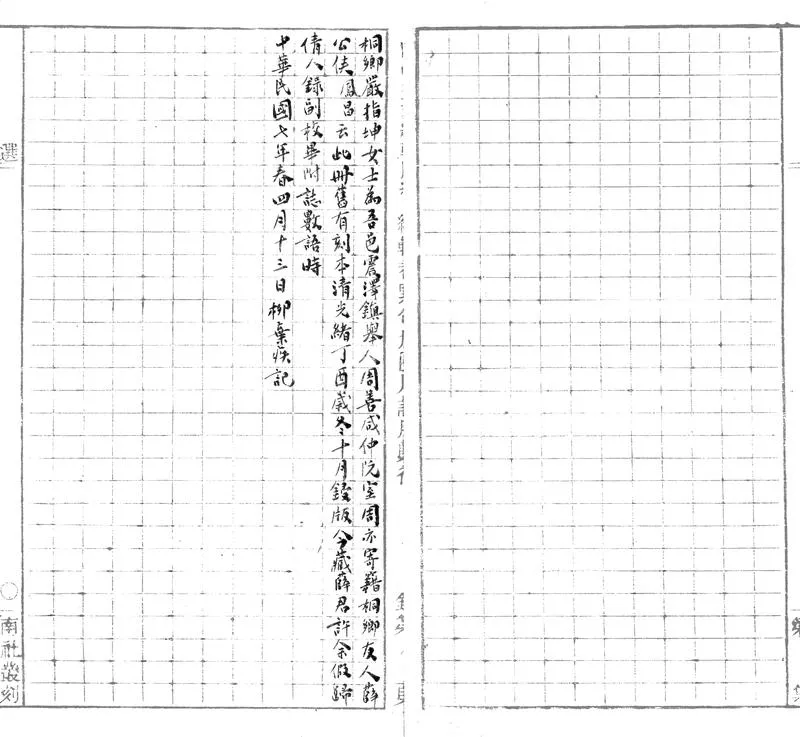 桐鄉嚴指坤女士為吾邑震澤鎮舉人周善咸仲阮室周亦寄籍桐鄉友人薛
公俠鳳昌云此冊舊有刻本清光緒丁酉歲冬十月鋟版今藏薛君許余假歸
倩人錄副校畢附誌數語時
中華民國七年春四月十三日柳棄疾記
選
南社叢刻